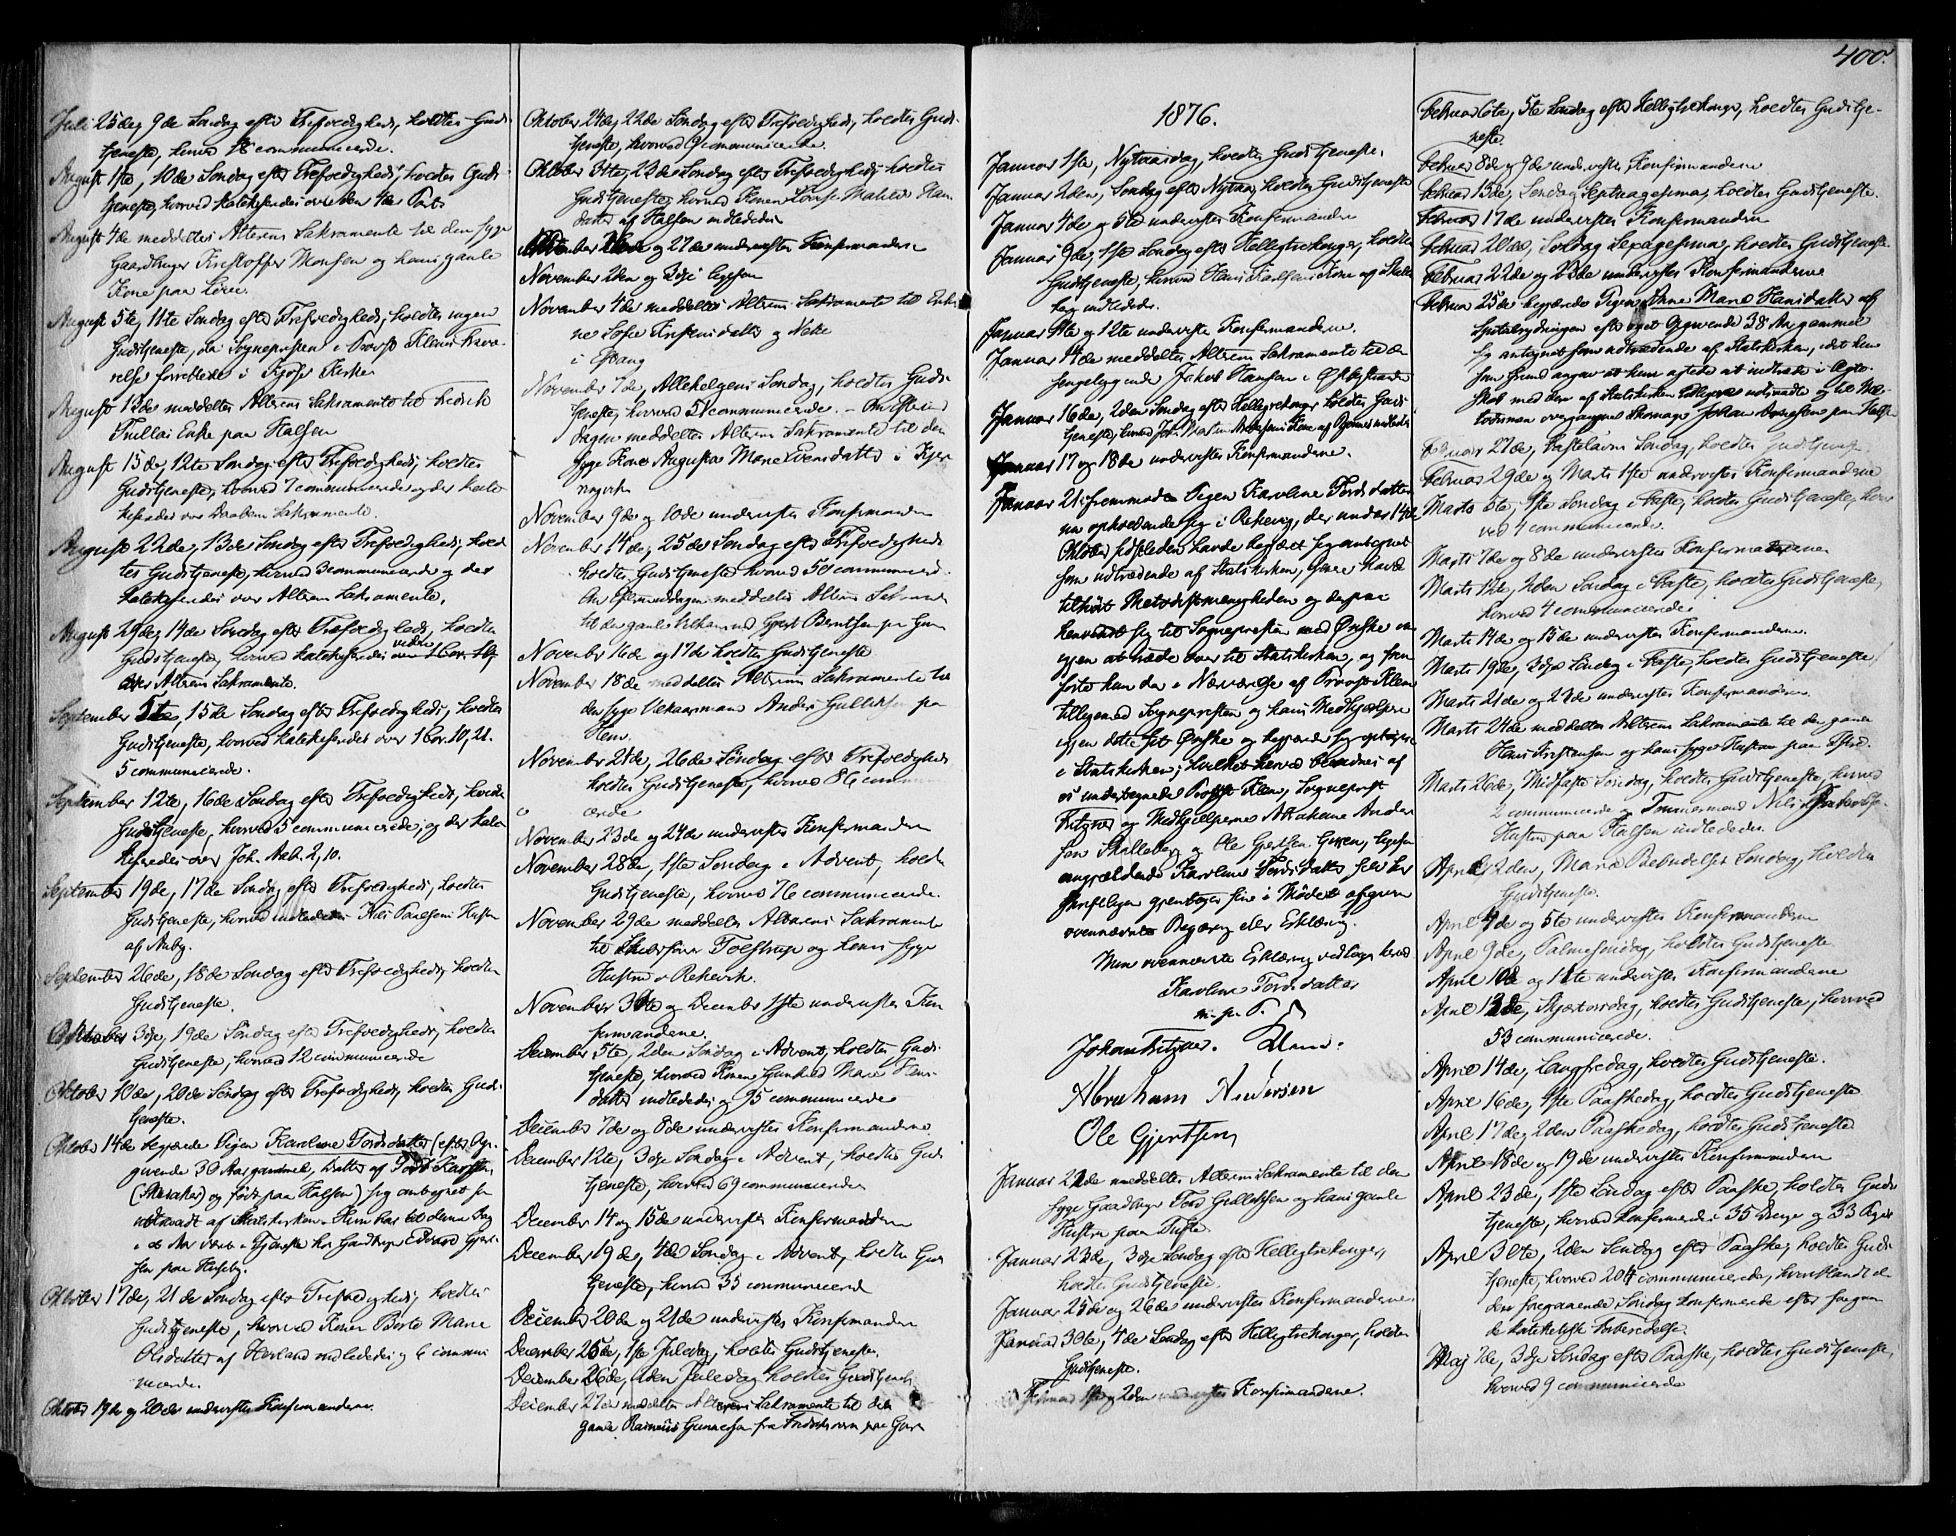 400.
Juli 25de, 9de Søndag efter Trefoldighed, holdtes Guds-
tjeneste, hvorved 18 communicerede.
August 1ste, 10de Søndag efter Trefoldighed, holdtes Guds-
tjeneste, hvorved katekiseredes over den 4de Part.
August 4de meddeltes Alterens Sakramente til den syge
Gaardbruger Kristoffer Monsen og hans gamle
Kone paa
August 5te, 11te Søndag efter Trefoldighed, holdtes ingen
Gudstjeneste, da Sognepresten i Provst Klems Fravæ-
relse forrettede i Kjose Kirke
August 12de meddeltes Alterens Sakramente til Fredrik
Enke paa Halsen
August 15de, 12te Søndag efter Trefoldighed, holdtes
Gudstjeneste, hvorved 7 communicerede og der kate-
kiseredes over Daabens Sakramente.
August 22de, 13de Søndag efter Trefoldighed, hold-
tes Gudstjeneste, hvorved 3 communicerede og der
katekiseredes over Alterens Sakramente.
August 29de, 14de Søndag efter Trefoldighed, holdtes
Gudstjeneste, hvorved katekiseredes videre over 1 Cor. 10,
over Alterens Sakramente.
September 5te, 15de Søndag efter Trefoldighed, holdtes
Gudstjeneste, hvorved katekiseredes over 1 Cor. 10, 21.
5 communicerede.
September 12te, 16de Søndag efter Trefoldighed, holdtes
Gudstjeneste, hvorved 5 communicerede, og der kate-
kiseredes over Joh. Aab. 2, 10.
September 19de, 17de Søndag efter Trefoldighed, holdtes
Gudstjeneste, hvorved indlededes Nils Paulsens Hustru
af Aaby.
September 26de, 18de Søndag efter Trefoldighed, holdtes
Gudstjeneste.
Oktober 3dje, 19de Søndag efter Trefoldighed, holdtes
Gudstjeneste, hvorved 12 communicerede
Oktober 10de, 20de Søndag efter Trefoldighed, holdtes Guds-
tjeneste.
Oktober 14de begjærede Pigen Karoline Torsdatter (efter Op-
givende 30 Aar gammel, Datter af Tord Larssen,
og født paa Halsen) sig antegnet som
udtraadt af Statskirken. Hun har til denne Dag
i Tjeneste hos Gaardbruger Edvard Gjert-
sen paa Huseby.
Oktober 17de, 21de Søndag efter Trefoldighed, holdtes
Gudstjeneste, hvorved Konen Berte Marie
Olsdatter af Hovland indlededes og 6 commu-
nicerede.
Oktober 19de og 20de undervistes Konfirmanderne.
Oktober 24de, 22de Søndag efter Trefoldighed, holdtes Guds-
tjeneste, hvorved 9 communicerede.
Oktober 31te, 23de Søndag efter Trefoldighed, holdtes
Gudstjeneste, hvorved Konen Lovise Mathea Han-
datter af Halsen indlededes
Oktober 26de og 27de undervistes Konfirmanderne
November 2den og 3dje ligesaa
November 4de meddeltes Alterens Sakramente til Enker-
ne Sofie Kristensdatter og
i
November 7de, Allehelgens Søndag, holdtes Guds-
tjeneste, hvorved 51 communicerede. –
dagen meddeltes Alterens Sakramente til den
syge Kone Augusta Marie Evensdatter i Kjer-
ringvik
November 9de og 10de undervistes Konfirmanderne
November 14de, 25de Søndag efter Trefoldighed
holdtes Gudstjeneste hvorved 50 communicerede.
Om Eftermiddagen meddeltes Alterens Sakramente
til den gamle Gjert Berntsen paa
November 16de og 17de holdtes Gudstjeneste
November 18de meddeltes Alterens Sakramente til
den syge Anders Gulliksen paa
Hem.
November 21de, 26de Søndag efter Trefoldighed
holdtes Gudstjeneste, hvorved 86 communi-
cerede
November 23de og 24de undervistes Konfirmanderne
November 28de, 1ste Søndag i Advent, holdtes
Gudstjeneste, hvorved 76 communicerede.
November 29de meddeltes Alterens Sakramente
til Skibsfører Tolstrup og hans syge
Hustru i Rekevik.
November 30te og December 1ste undervistes Kon-
firmanderne.
December 5te, 2den Søndag i Advent, holdtes Guds-
tjeneste, hvorved Konen Gunhild Marie Hans-
datter indlededes og 95 communicerede
December 7de og 8de undervistes Konfirmanderne
December 12te, 3dje Søndag i Advent, holdtes Guds-
tjeneste, hvorved 69 communicerede
December 14 og 15de undervistes Konfirmanderne
December 19de, 4de Søndag i Advent, holdtes Guds-
tjeneste, hvorved 35 communicerede
December 20de og 21de undervistes Konfirmanderne
December 25de, 1ste Juledag, holdtes Gudstjeneste.
December 26de, 2den Juledag holdtes Gudstj.
December 27de meddeltes Alterens Sakramente til den
gamle Rasmus Gunnersen fra paa
1876.
Januar 1ste, Nytaarsdag, holdtes Gudstjeneste.
Januar 2den, Søndag efter Nytaar, holdtes Gudstjeneste
Januar 4de og 5te undervistes Konfirmanderne
Januar 9de, 1ste Søndag efter Helligtrekonger, holdtes
Gudstjeneste, hvorved Hans Karlsens Kone af Skalle-
berg indlededes.
Januar 11te og 12te undervistes Konfirmanderne.
Januar 14de meddeltes Alterens Sakramente til den
sengeliggende Jakob Hansen i
Januar 16de, 2den Søndag efter Helligtrekonger holdtes Guds-
tjeneste, hvorved Joh. Martin Andersens Kone af indlededes
Januar 17 og 18de undervistes Konfirmanderne.
Januar 21 fremmødte Pigen Karoline Torsdatter
nu opholdende sig i Rekevig, der under 14de
Oktober sidstleden havde begjært sig antegnet
som udtrædende af Statskirken, for at have
tilhørt Metodistmenigheden og derpaa
henvendt sig til Sognepresten med Ønske om
igjen at træde over til Statskirken, og frem-
førte hun da i Nærværelse af Provst Klem
tilligemed Sognepresten og hans Medhjælpere
igjen dette sit Ønske og begjærede sig optaget
i Statskirken; hvilket herved bevidnes af
os undertegnede Provst Klem, Sogneprest
Kritzner og Medhjælperne Abraham Ander-
sen Skalleberg og Ole Gjertsen Gjeen, ligesom
angjældende Karoline Torsdatter selv her
skriftligen gjentager sin i Mødet afgivne
ovennævnte Begjæring eller Erklæring.
Min ovennævnte Erklæring vedtages herved
Karoline Torsdatter
m. p. P.
Johan Kritzner. Klem.
Abraham Andersen
Ole Gjertsen
Januar 22de meddeltes Alterens Sakramente til den
syge Gaardbruger Tord Gulliksen og hans gamle
Hustru paa Tufte.
Januar 23de, 3dje Søndag efter Helligtrekonger,
holdtes Gudstjeneste.
Januar 25de og 26de undervistes Konfirmanderne.
Januar 30te, 4de Søndag efter Helligtrekonger, holdtes
Gudstjeneste.
Februar 1ste og 2den undervistes Konfirmanderne.
Februar 6te, 5te Søndag efter Helligtrekonger, holdtes Gudstje-
neste.
Februar 8de og 9de undervistes Konfirmanderne
Februar 13de, Søndag Septuagesima, holdtes Gudstjeneste.
Februar 17de undervistes Konfirmanderne
Februar 20de, Søndag Sexagesima, holdtes Gudstjeneste.
Februar 22de og 23de undervistes Konfirmanderne
Februar 25de begjærede Pigen Anne Marie Hansdatter af
efter eget Opgivende 38 Aar gammel
sig antegnet som udtrædende af Statskirken, idet hun
som Grund angav at hun agtede at indtræde i Ægte-
skab med den af Statskirken udtraadte og til Me-
todismen overgangne Skomager Johan Arnesen paa Halsen
Februar 27de, Fastelavns Søndag, holdtes Gudstjeneste
Februar 29de og Marts 1ste undervistes Konfirmanderne
Marts 5te, 1ste Søndag i Faste, holdtes Gudstjeneste, hvor-
ved 4 communicerede.
Marts 7de og 8de undervistes Konfirmanderne
Marts 12te, 2den Søndag i Faste, holdtes Gudstjeneste,
hvorved 4 communicerede.
Marts 14de og 15de undervistes Konfirmanderne.
Marts 19de, 3dje Søndag i Faste, holdtes Gudstjeneste
Marts 21de og 22de undervistes Konfirmanderne.
Marts 24de meddeltes Alterens Sakramente til den gamle
Hans Kristensen og hans syge Hustru paa
Marts 26de, Midfaste Søndag, holdtes Gudstjeneste, hvorved
2 communicerede og Tømmermand Nils Jakobs.
Hustru paa Halsen indlededes.
April 2den, Mariæ Bebudelses Søndag, holdtes
Gudstjeneste.
April 4de og 5te undervistes Konfirmanderne
April 9de, Palmesøndag, holdtes Gudstjeneste
April 10de og 11te undervistes Konfirmanderne
April 13de, Skjærtorsdag, holdtes Gudstjeneste, hvorved
53 communicerede.
April 14de, Langfredag, holdtes Gudstjeneste.
April 16de, 1ste Paaskedag, holdtes Gudstjeneste
April 17de, 2den Paaskedag, holdtes Gudstjeneste
April 18de og 19de undervistes Konfirmanderne
April 23de, 1ste Søndag efter Paaske, holdtes Guds-
tjeneste, hvorved konfirmeredes 35 Drenge og 33 Piger
April 30te, 2den Søndag efter Paaske, holdtes Guds-
tjeneste, hvorved 204 communicerede, hvoriblandt de
den foregaaende Søndag konfirmerede efter foregaa-
de katekestisk Forberedelse.
Maj 7de, 3dje Søndag efter Paaske, holdtes Gudstjeneste,
hvorved 9 communicerede